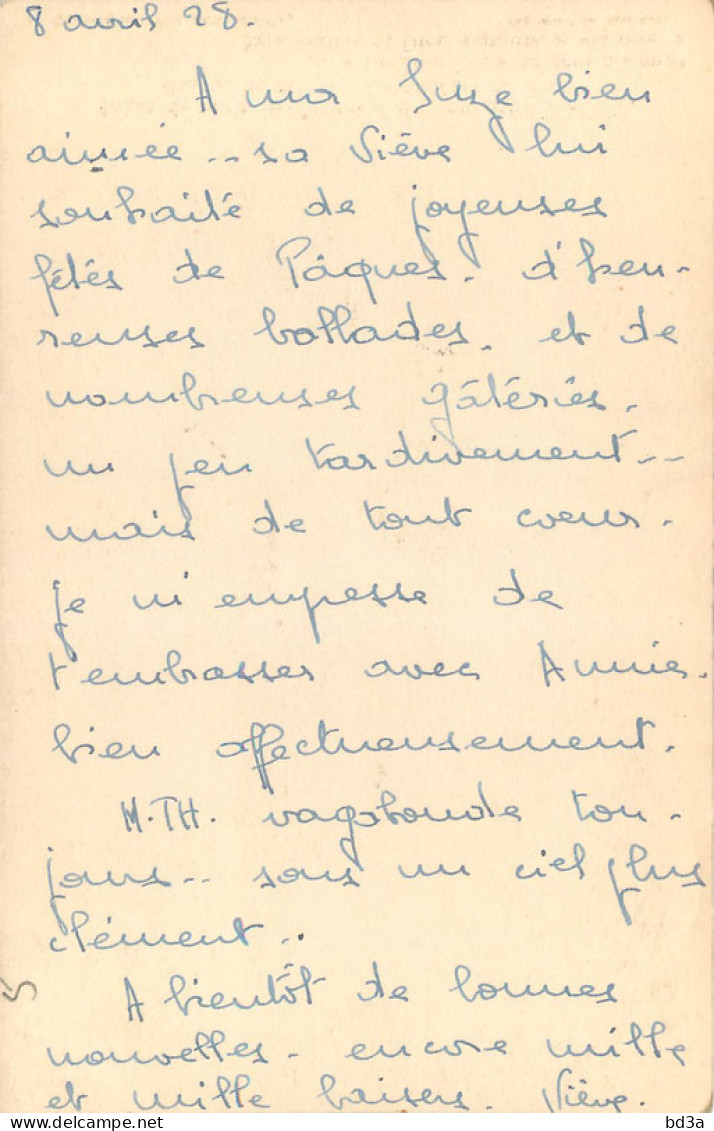 8 avril 28.
A ma Suze bien
aimée -- sa Viève lui
souhaité de joyeuses
fêtés de Pâques. d'heu-
reuses ballades. et de
nombreuses gâtériés.
un peu tardivement --
mais de tout coeur.
je m'empesse de
t'embrasser avec Annie.
bien affectueusement.
M.TH. vagabonde tou-
jours -- sous un ciel plus
clément..
A bientôt de bonnes
nouvelles - encore mille
et mille baisers. Viève.
bd3a